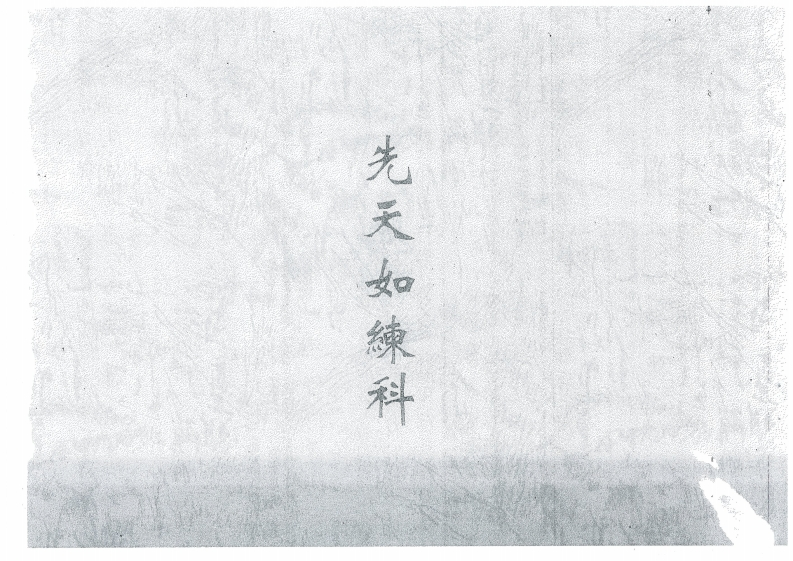 先天如練科